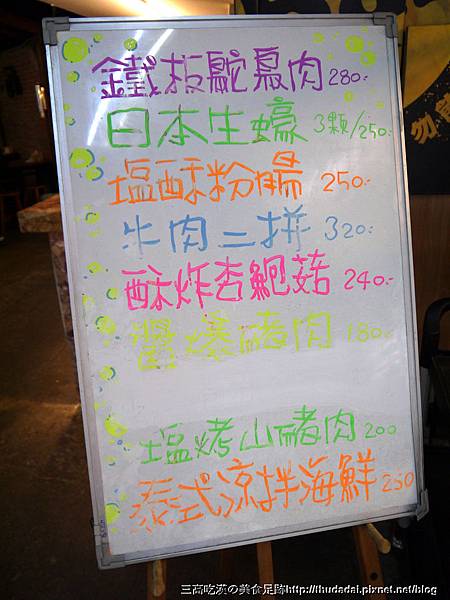 鐵板鴕鳥肉280.-
日本生蠔3顆/250.-
塩酥粉腸250.-
牛肉二拼320.-
酥炸杏鮑菇240.-
醬爆豬肉180.-
塩烤山豬肉200
泰式涼拌海鮮250
三高吃漢の美食足跡http://thudadai.pixnet.net/blog